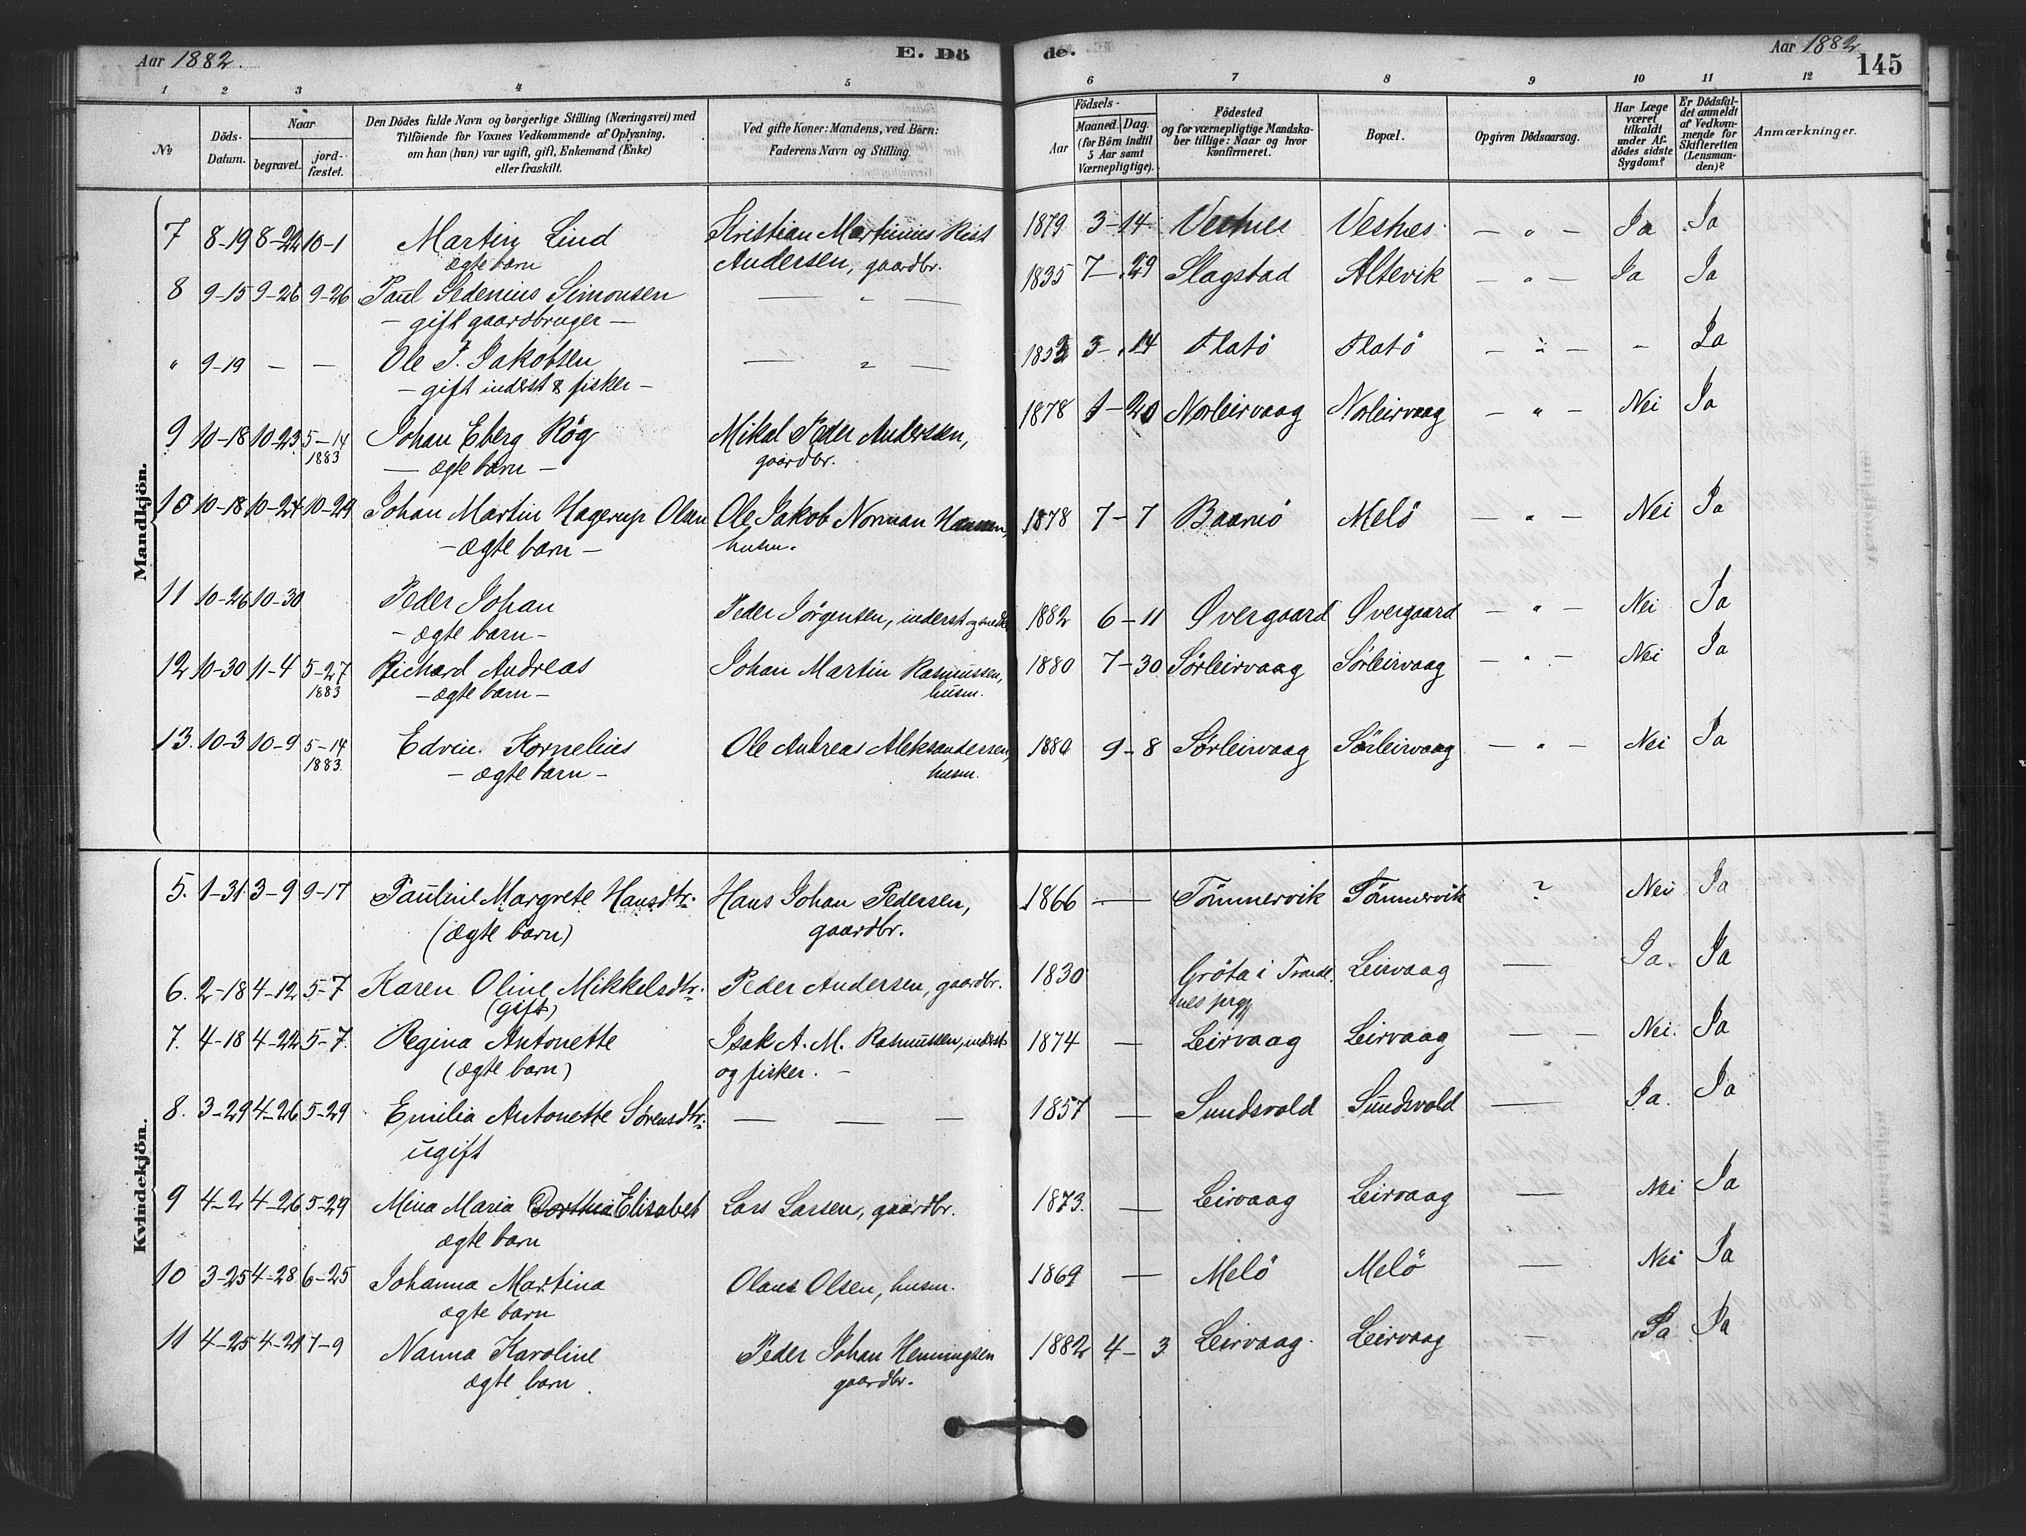 Aar 1882. E. Dö de. Aar 1882 145
1 2 3 4 5 6 7 8 9 10 11 12
№ Döds-Datum. Naar begravet. jord-fæstet.
Den Dödes fulde Navn og borgerlige Stilling (Næringsvei) med
Tilföiende for Voxnes Vedkommende af Oplysning,
om han (hun) var ugift, gift, Enkemand (Enke)
eller fraskilt.
Ved gifte Koner: Mandens, ved Börn:
Faderens Navn og Stilling
Födsels-
Aar Maaned. Dag.
(for Börn indtil
5 Aar samt
Værnepligtige).
Födested
og for værnepligtige Mandska-
ber tillige: Naar og hvor
konfirmeret.
Bopæl.
Opgiven Dödsaarsag.
Har Læge
været
tilkaldt
under Af-
dödes sidste
Sygdom?
Er Dödsfal-
det anmeldt
af Vedkom-
mende for
Skifteretten
(Lensman-
den)?
Anmærkninger.
Mandkjön.
7 8-19 8-22 10-1 Martin Lind Kristian Martinius Rist 1879 3-14 Vesnes Vesnes - „ - Ja Ja
ægte barn Andersen, gaardbr.
8 9-15 9-26 9-26 Paul Pedenius Simonsen — „ — 1835 7-29 Slagstad Altevik - „ - Ja Ja
- gift gaardbruger -
„ 9-19 - - Ole P. Jakobsen — „ — 3-14 Flatö Flatö - „ - - Ja
- gift inderst & fisker -
9 10-18 10-23 5-14 Johan Eberg Røg Mikal Peder Andersen, 1878 1-20 Norleirvaag Norleirvaag - „ - Nei Ja
1883 - ægte barn - gaardbr.
10 10-18 10-24 10-29 Johan Martin Hagerup Olsen Ole Jakob Norman Hansen, 1878 7-7 Melö - „ - Nei Ja
- ægte barn - husm.
11 10-26 10-30 Peder Johan Peder Jørgensen, inderst og 1882 6-11 Øvergaard Øvergaard - „ - Nei Ja
- ægte barn -
12 10-30 11-4 5-27 Richard Andreas Johan Martin Rasmussen, 1880 7-30 Sørleirvaag Sørleirvaag - „ - Nei Ja
1883 - ægte barn - husm.
13. 10-3 10-9 5-14 Edvin Kornelius Ole Andreas Aleksandersen, 9-8 Sørleirvaag Sørleirvaag - „ - Nei Ja
1883. - ægte barn - husm.
Kvindekjön.
5. 1-31 3-9 9-17 Pauline Margrete Hansdtr. Hans Johan Pedersen, 1866 — Tömmervik Tömmervik ? Nei Ja
(ægte barn) gaardbr.
6. 2-18 4-12 5-7 Karen Oline Mikkelsdtr. Peder Andersen, gaardbr. 1830 Gröta i Tronde Leirvaag — Ja. Ja
(gift) nes prgj
7. 4-18 4-22 5-7 Regina Antonette Isak A. M. Rasmussen, inderst 1874 — Leirvaag Leirvaag — Nei. Ja
(ægte barn) og fisker. -
8. 3-29 4-26 5-29 Emilia Antonette Sörensdtr. — — — 1857 — Sundsvold Sundsvold — Ja. Ja
ugift
9 4-2 4-26 5-29 Mina Maria Dorthea Elisabet Lars Larsen, gaardbr. 1873. — Leirvaag Leirvaag — Nei Ja
ægte barn
10 3-25 4-28 6-25 Johanna Martina Olaus Olsen, husm. 1869 — Melö Melö — Nei Ja
ægte barn
11 4-25 4-29 7-9 Nanna Karoline Peder Johan Henningsen 1882 4-3 Leirvaag. Leirvaag — Ja Ja
ægte barn. gaardbr.